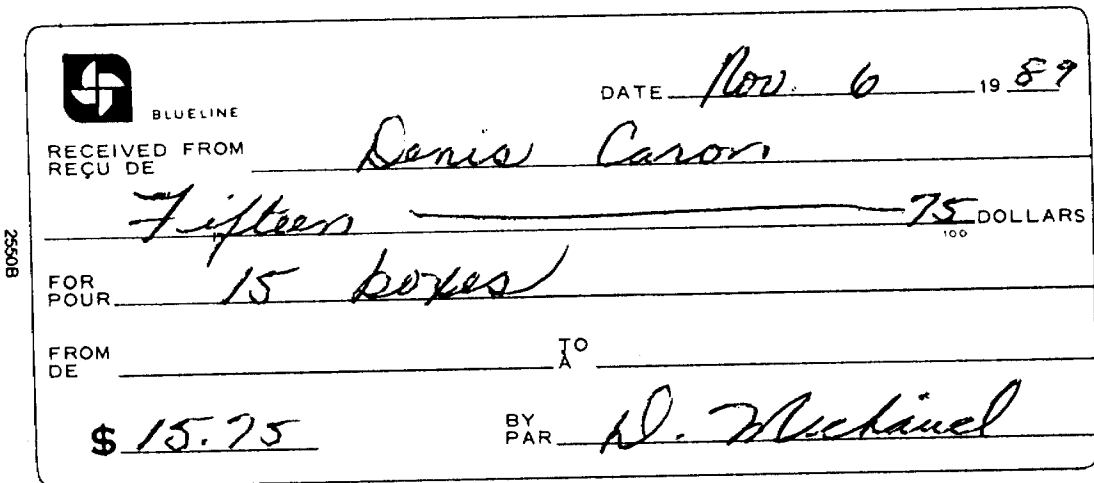 BLUELINE
DATE Nov. 6 19 89
RECEIVED FROM
REÇU DE Denis Caron
Fifteen 75/100 DOLLARS
FOR
POUR 15 boxes
FROM
DE
TO
A
$ 15.75
BY
PAR D. Michaud
2550B